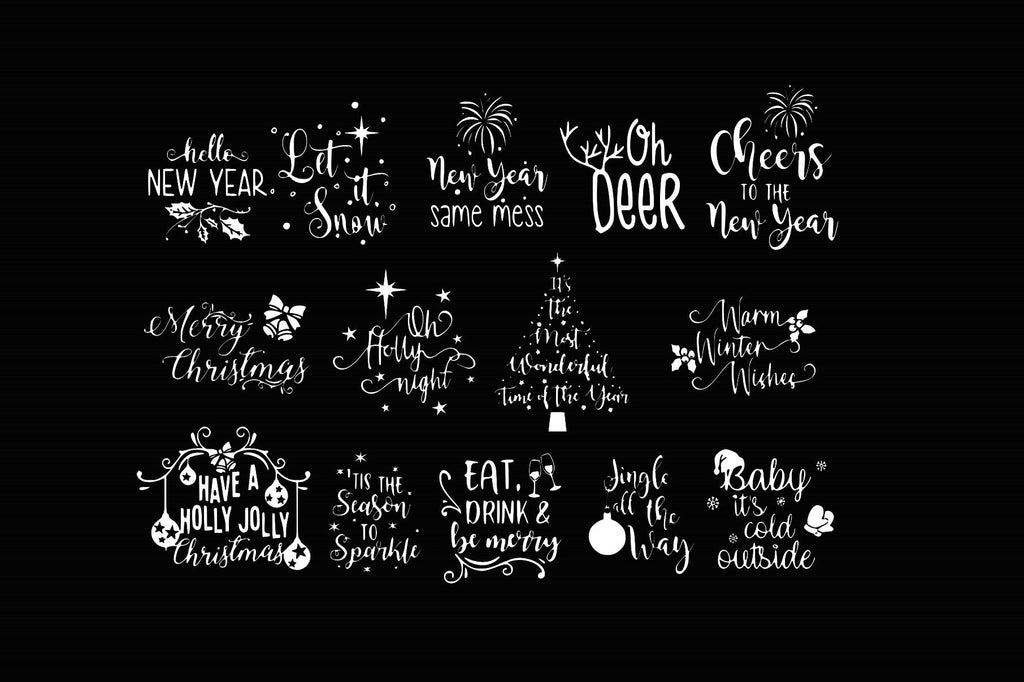 hello
NEW YEAR
Let
it
Snow
New Year
same mess
Oh
DeeR
Cheers
TO THE
New Year
Merry
Christmas
Oh
Holly
night
It's
the
Most
Wonderful
time of the Year
Warm
Winter
Wishes
HAVE A
HOLLY JOLLY
Christmas
'TIS THE
Season
TO
Sparkle
EAT,
DRINK &
be merry
Jingle
all the
Way
Baby
it's
cold
outside